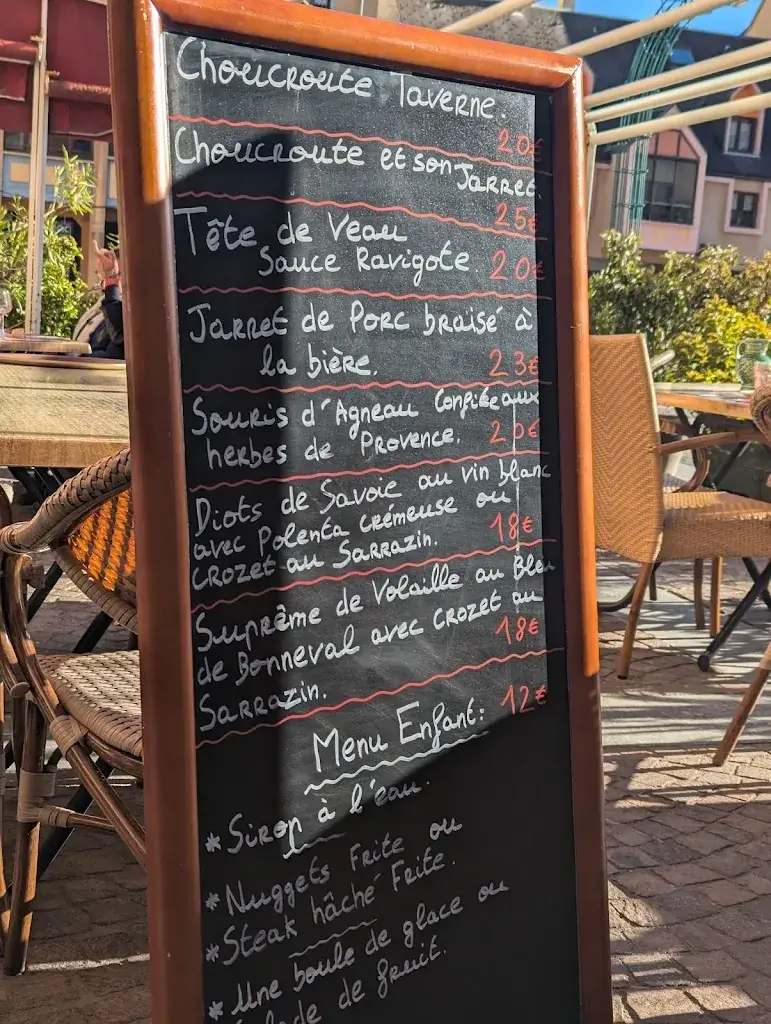 Choucroute Taverne.
20€
Choucroute et son Jarret.
25€
Tête de Veau
Sauce Ravigote. 20€
Jarret de Porc braisé à
la bière. 23€
Souris d'Agneau Confiée aux
herbes de Provence. 20€
Diots de Savoie au vin blanc
avec Polenta crémeuse ou
Crozet au Sarrazin. 18€
Suprême de Volaille au Bleu
de Bonneval avec Crozet au
Sarrazin. 18€
Menu Enfant: 12€
* Sirop à l'eau.
* Nuggets Frite ou
* Steak hâché Frite.
* Une boule de glace ou
de fruit.